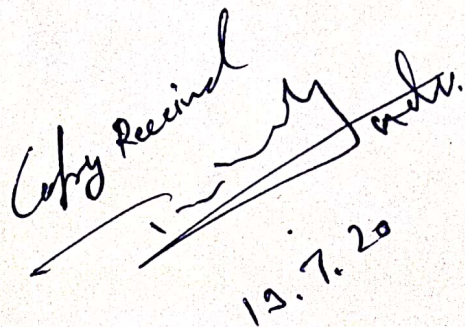 Copy Received
Adv.
19.7.20